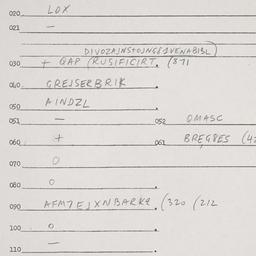 020 LOX
021 —
DIVOZAJNSTOJNG&1VENABISL)
030 + QAP (RUSIFICIRT. (871
040 GREJSERBRIK
050 AINDZL
051 — 052 OMASC
060 + 061 BRĘG8ES (42
070 O
080 O
090 AFM7EJXNBARK9. (320 (212
100 O
— 
110